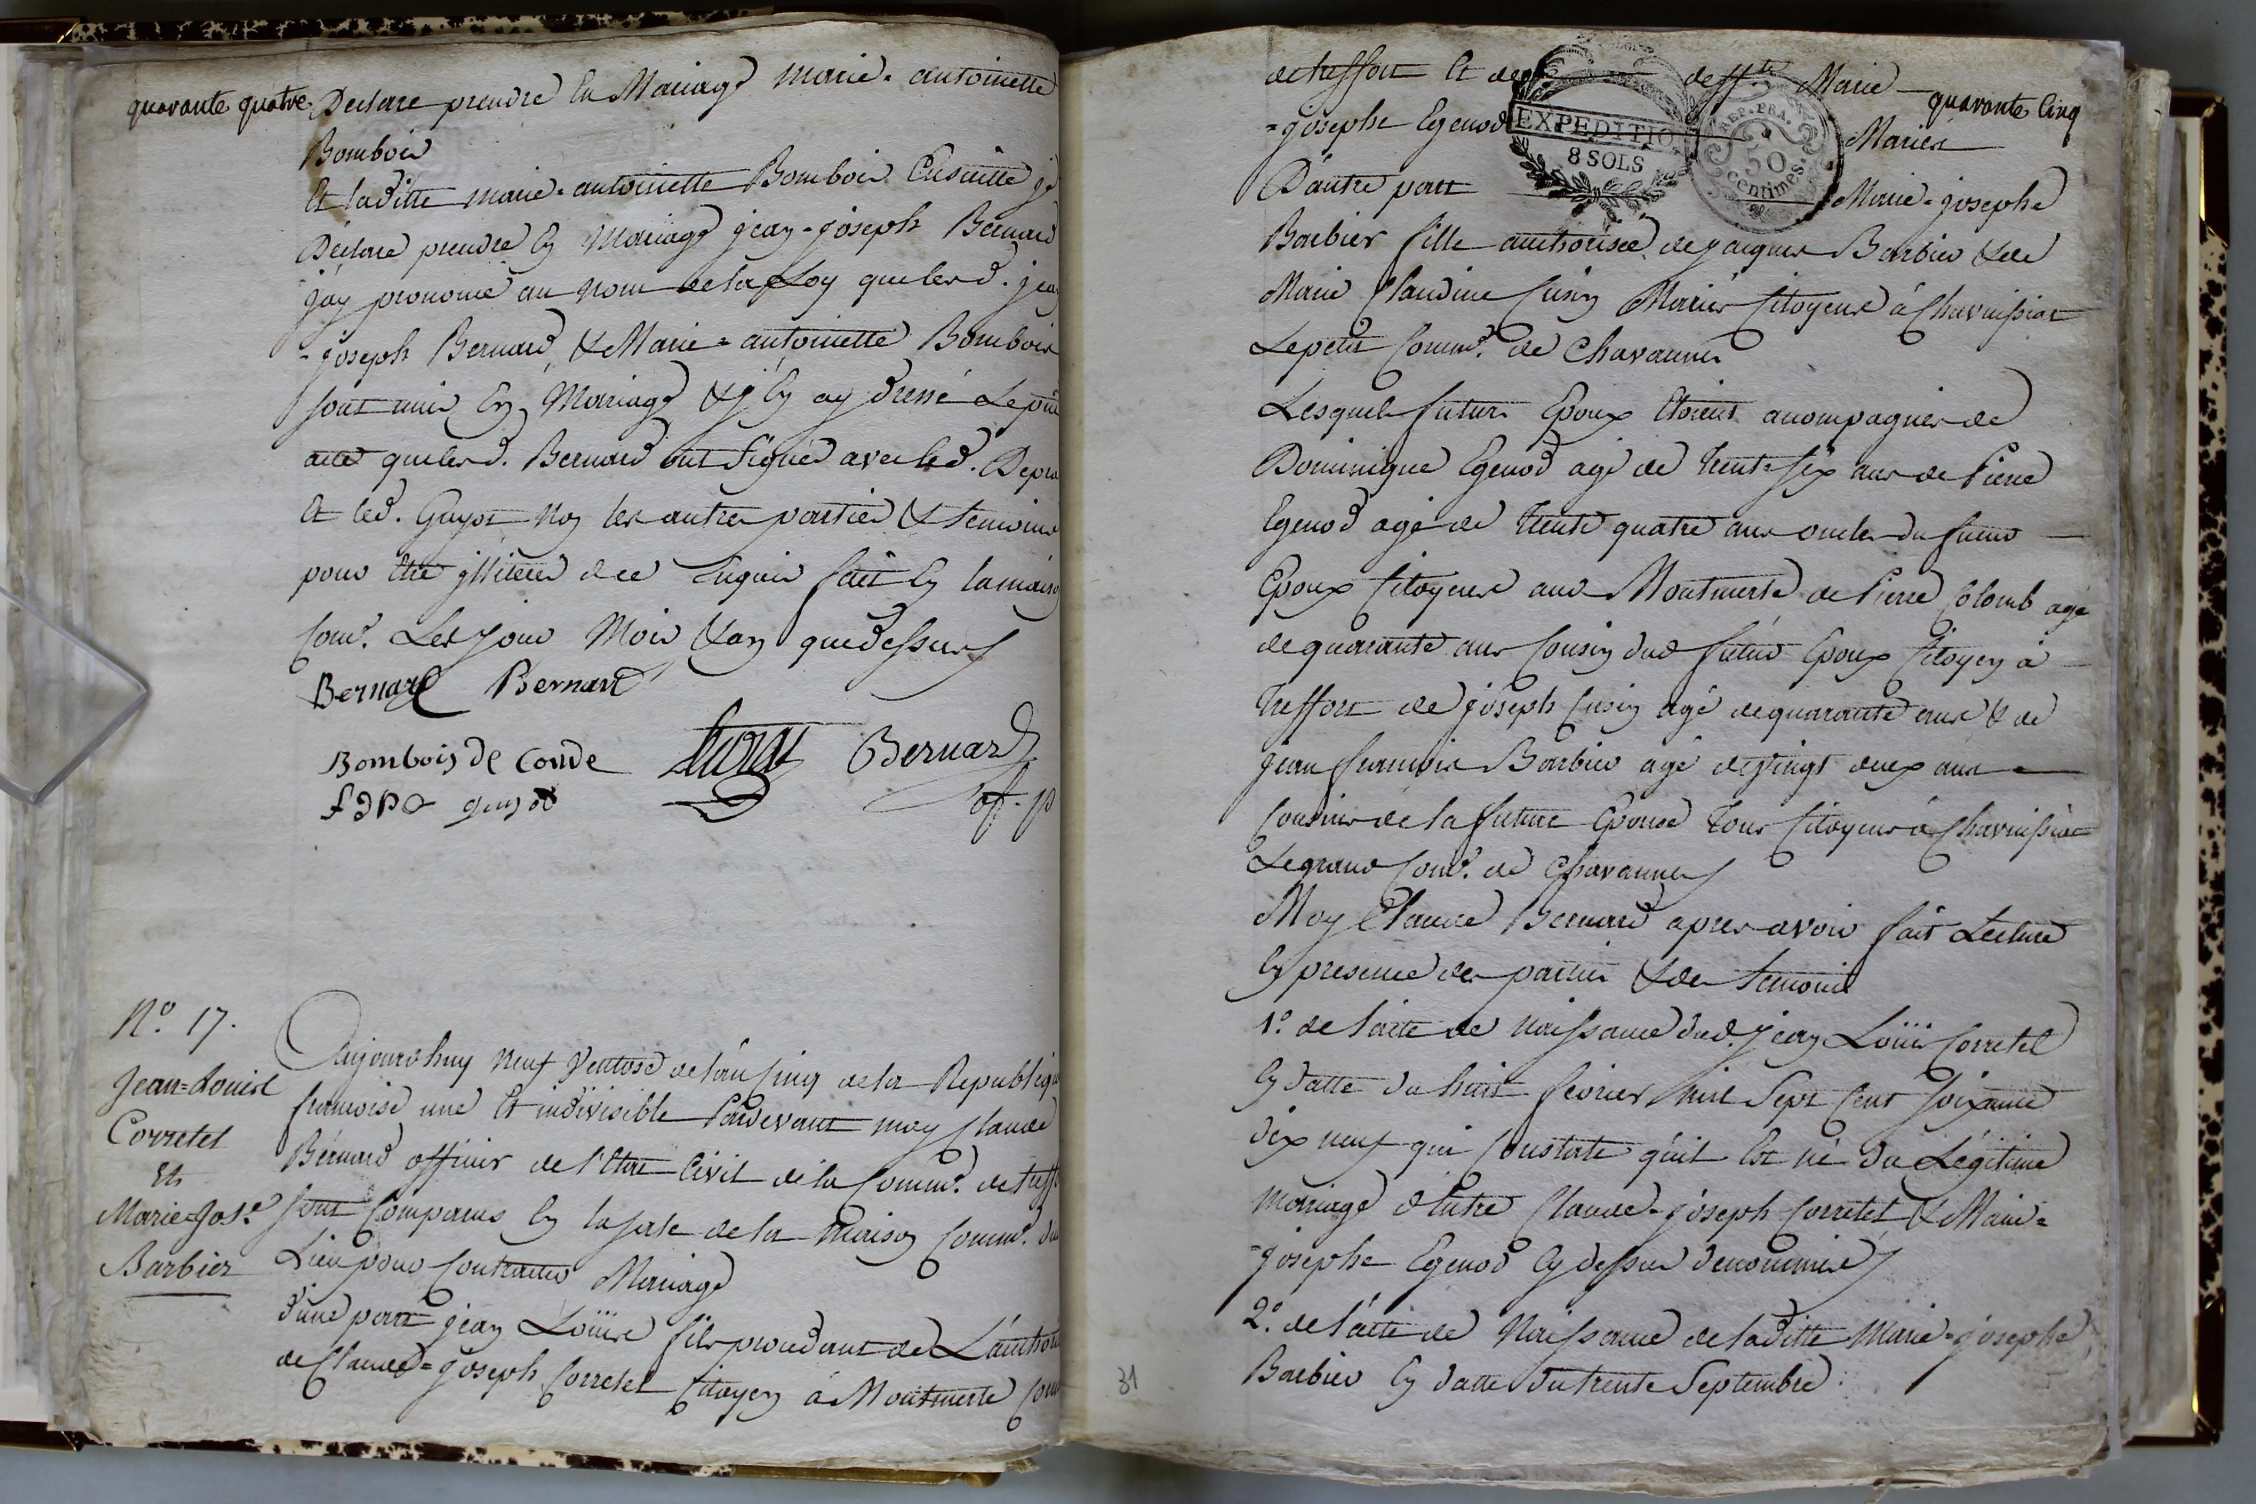 quarante quatre
Declare prendre En Mariage marie-antoinette
Bombois
Et laditte marie-antoinette Bombois Ensuitte
Declare prendre En Mariage jean-joseph Bernard
j'ay prononcé au nom de la Loy que lesd. jean
-joseph Bernard & Marie=antoinette Bombois
sont unis En Mariage & j'En ay dressé Le
acte que lesd. Bernard ont signé avec led.
Et led. Guyot non les autres parties & temoins
pour Etre illiteres de ce Enquis fait En la maison
Com.e Les jour Mois & an que dessus
Bernard Bernard
Bombois de Conde Bernard
guyot of. p
N.o 17.
Jean=Louis
Corretel
Et
Marie=Jos.e
Barbier
Aujourdhuy neuf Ventose de l'an Cinq de la Republique
francoise une Et indivisible Pardevant moy Claude
Bernard officier de l'Etat Civil de la Comm.e de treffort
sont Comparus En la sale de la Maison Comm.e du
Lieu pour Contracter Mariage
d'une part jean Loüis fils procedant de L'authorité
de Claude=joseph Corretel Citoyen à Montmerle Com
quarante Cinq
de treffort Et de deff.te Marie
=josephe Egenod Mariés
D'autre part Marie-josephe
Barbier fille authorisée de jacques Barbier & de
Marie Claudine Cusin Mariés Citoyens à Chavuissiat
Le petit Comm.e de Chavannes
Lesquels futurs Epoux Etoient accompagnés de
Dominique Egenod agé de trente six ans de Pierre
Egenod agé de trente quatre ans oncles du futur
Epoux Citoyens aud Montmerle de Pierre Colomb agé
de quarante ans Cousin dud futur Epoux Citoyen à
treffort de joseph Cusin agé de quarante ans & de
jean francois Barbier agé de vingt deux ans
Cousins de la future Epouse tous Citoyens à Chavuissiat
Le grand Com.e de Chavannes
Moy Claude Bernard apres avoir fait Lecture
En presence des parties & des temoins
1.o de l'acte de naissance dud. jean Loüis Corretel
En datte du huit fevrier mil Sept Cent soixante
dix neuf qui Constate qu'il Est né du Légitime
mariage d'Entre Claude-joseph Corretel & Marie=
=josephe Egenod Cy dessus denommés
2.o de l'acte de Naissance de laditte Marie-josephe
Barbier En datte du trente Septembre
EXPEDITIO
8 SOLS
REP. FRA.
50
centimes.
31